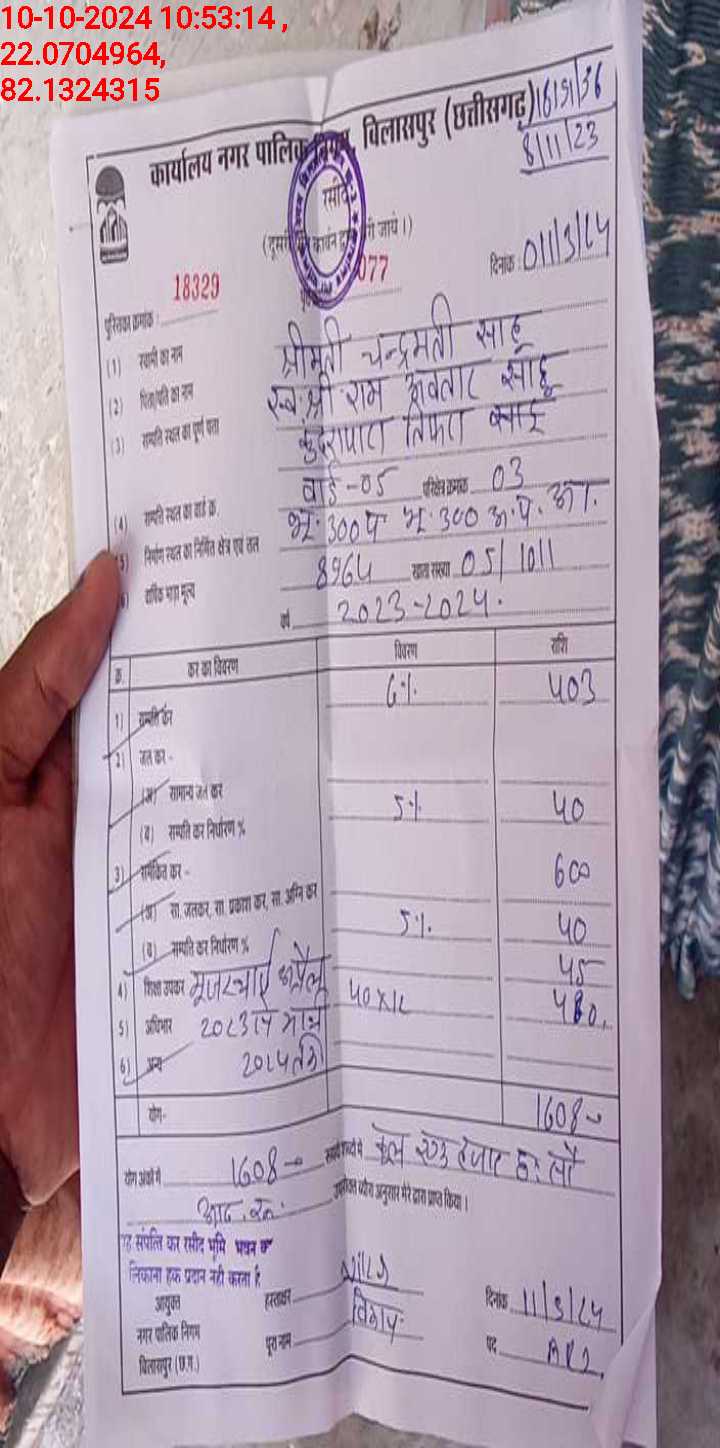 10-10-2024 10:53:14 ,
22.0704964,
82.1324315
कार्यालय नगर पालिक निगम, विलासपुर (छत्तीसगढ़)
8/11/23
रसीद
दिनांक :
18329 077
पुस्तिका क्रमांक :
(1) स्वामी का नाम श्रीमती चन्द्रमती साहू
(2) पिता/पति का नाम स्व. श्री राम अवतार साहू
(3) सम्पति स्थल का पूर्ण पता कुदरापारा तिफरा
(4) सम्पति स्थल का वार्ड क्र. वार्ड -05 परिक्षेत्र क्रमांक 03
(5) निर्माण स्थल का निर्मित क्षेत्र एवं तल
(6) वार्षिक भाड़ा मूल्य 8964 खाता संख्या 05/1011
वर्ष 2023-2024.
क्र. कर का विवरण विवरण राशि
1) सम्पति कर 6% 403
2) जल कर -
(अ) सामान्य जल कर
(ब) सम्पति कर निर्धारण % 5% 40
3) समेकित कर - 600
(अ) सा. जलकर, सा. प्रकाश कर, सा. अग्नि कर
(ब) सम्पति कर निर्धारण % 5% 40
4) शिक्षा उपकर 45
5) अधिभार 40x12 480
6) अन्य
योग- 1608
योग अंकों में 1608 रूपये शब्दों में कुल एक हजार छः सौ
आठ रू.
उपरोक्त व्योरा अनुसार मेरे द्वारा प्राप्त किया।
यह संपत्ति कर रसीद भूमि भवन का
मालिकाना हक प्रदान नही करता है
आयुक्त हस्ताक्षर दिनांक
नगर पालिक निगम पूरा नाम पद
विलासपुर (छ.ग.)